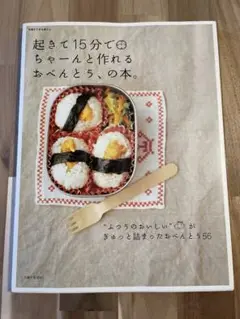 起きて15分で
ちゃーんと作れる
おべんとう、の本。
"ふつうのおいしい"が
ぎゅっと詰まったおべんとう66